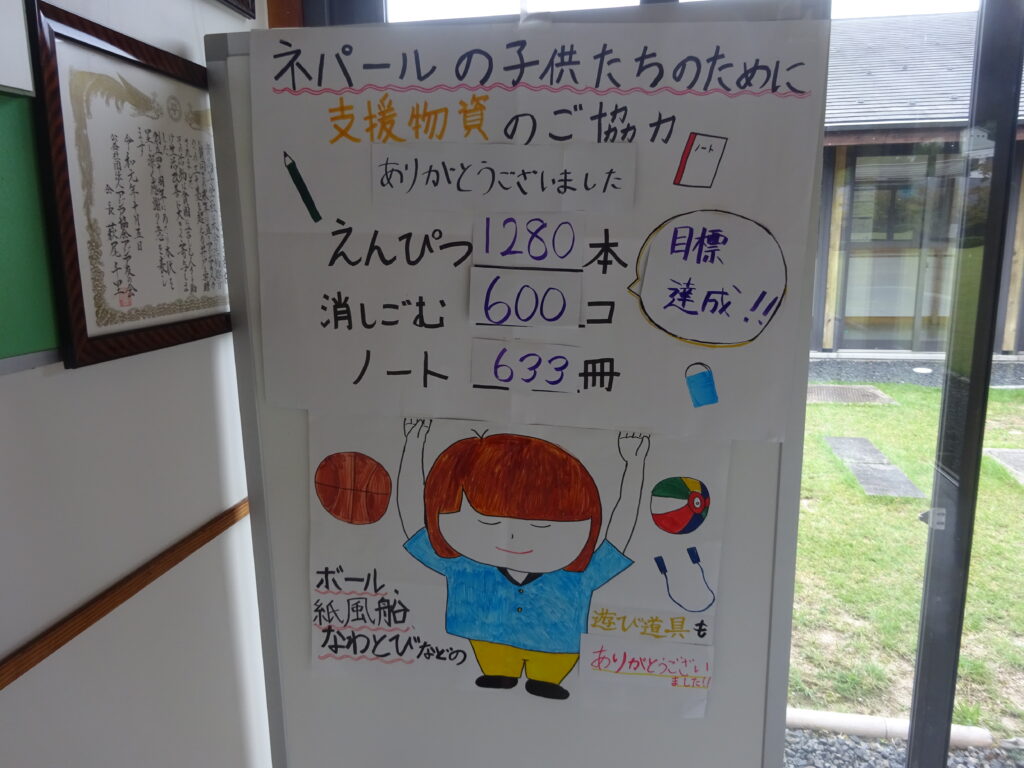 ネパールの子供たちのために
支援物資のご協力
ありがとうございました
ノート
えんぴつ 1280 本
消しごむ 600 コ
ノート 633 冊
目標
達成!!
ボール、
紙風船
なわとびなどの
遊び道具も
ありがとうござい
ました!!
令和元年十月三日